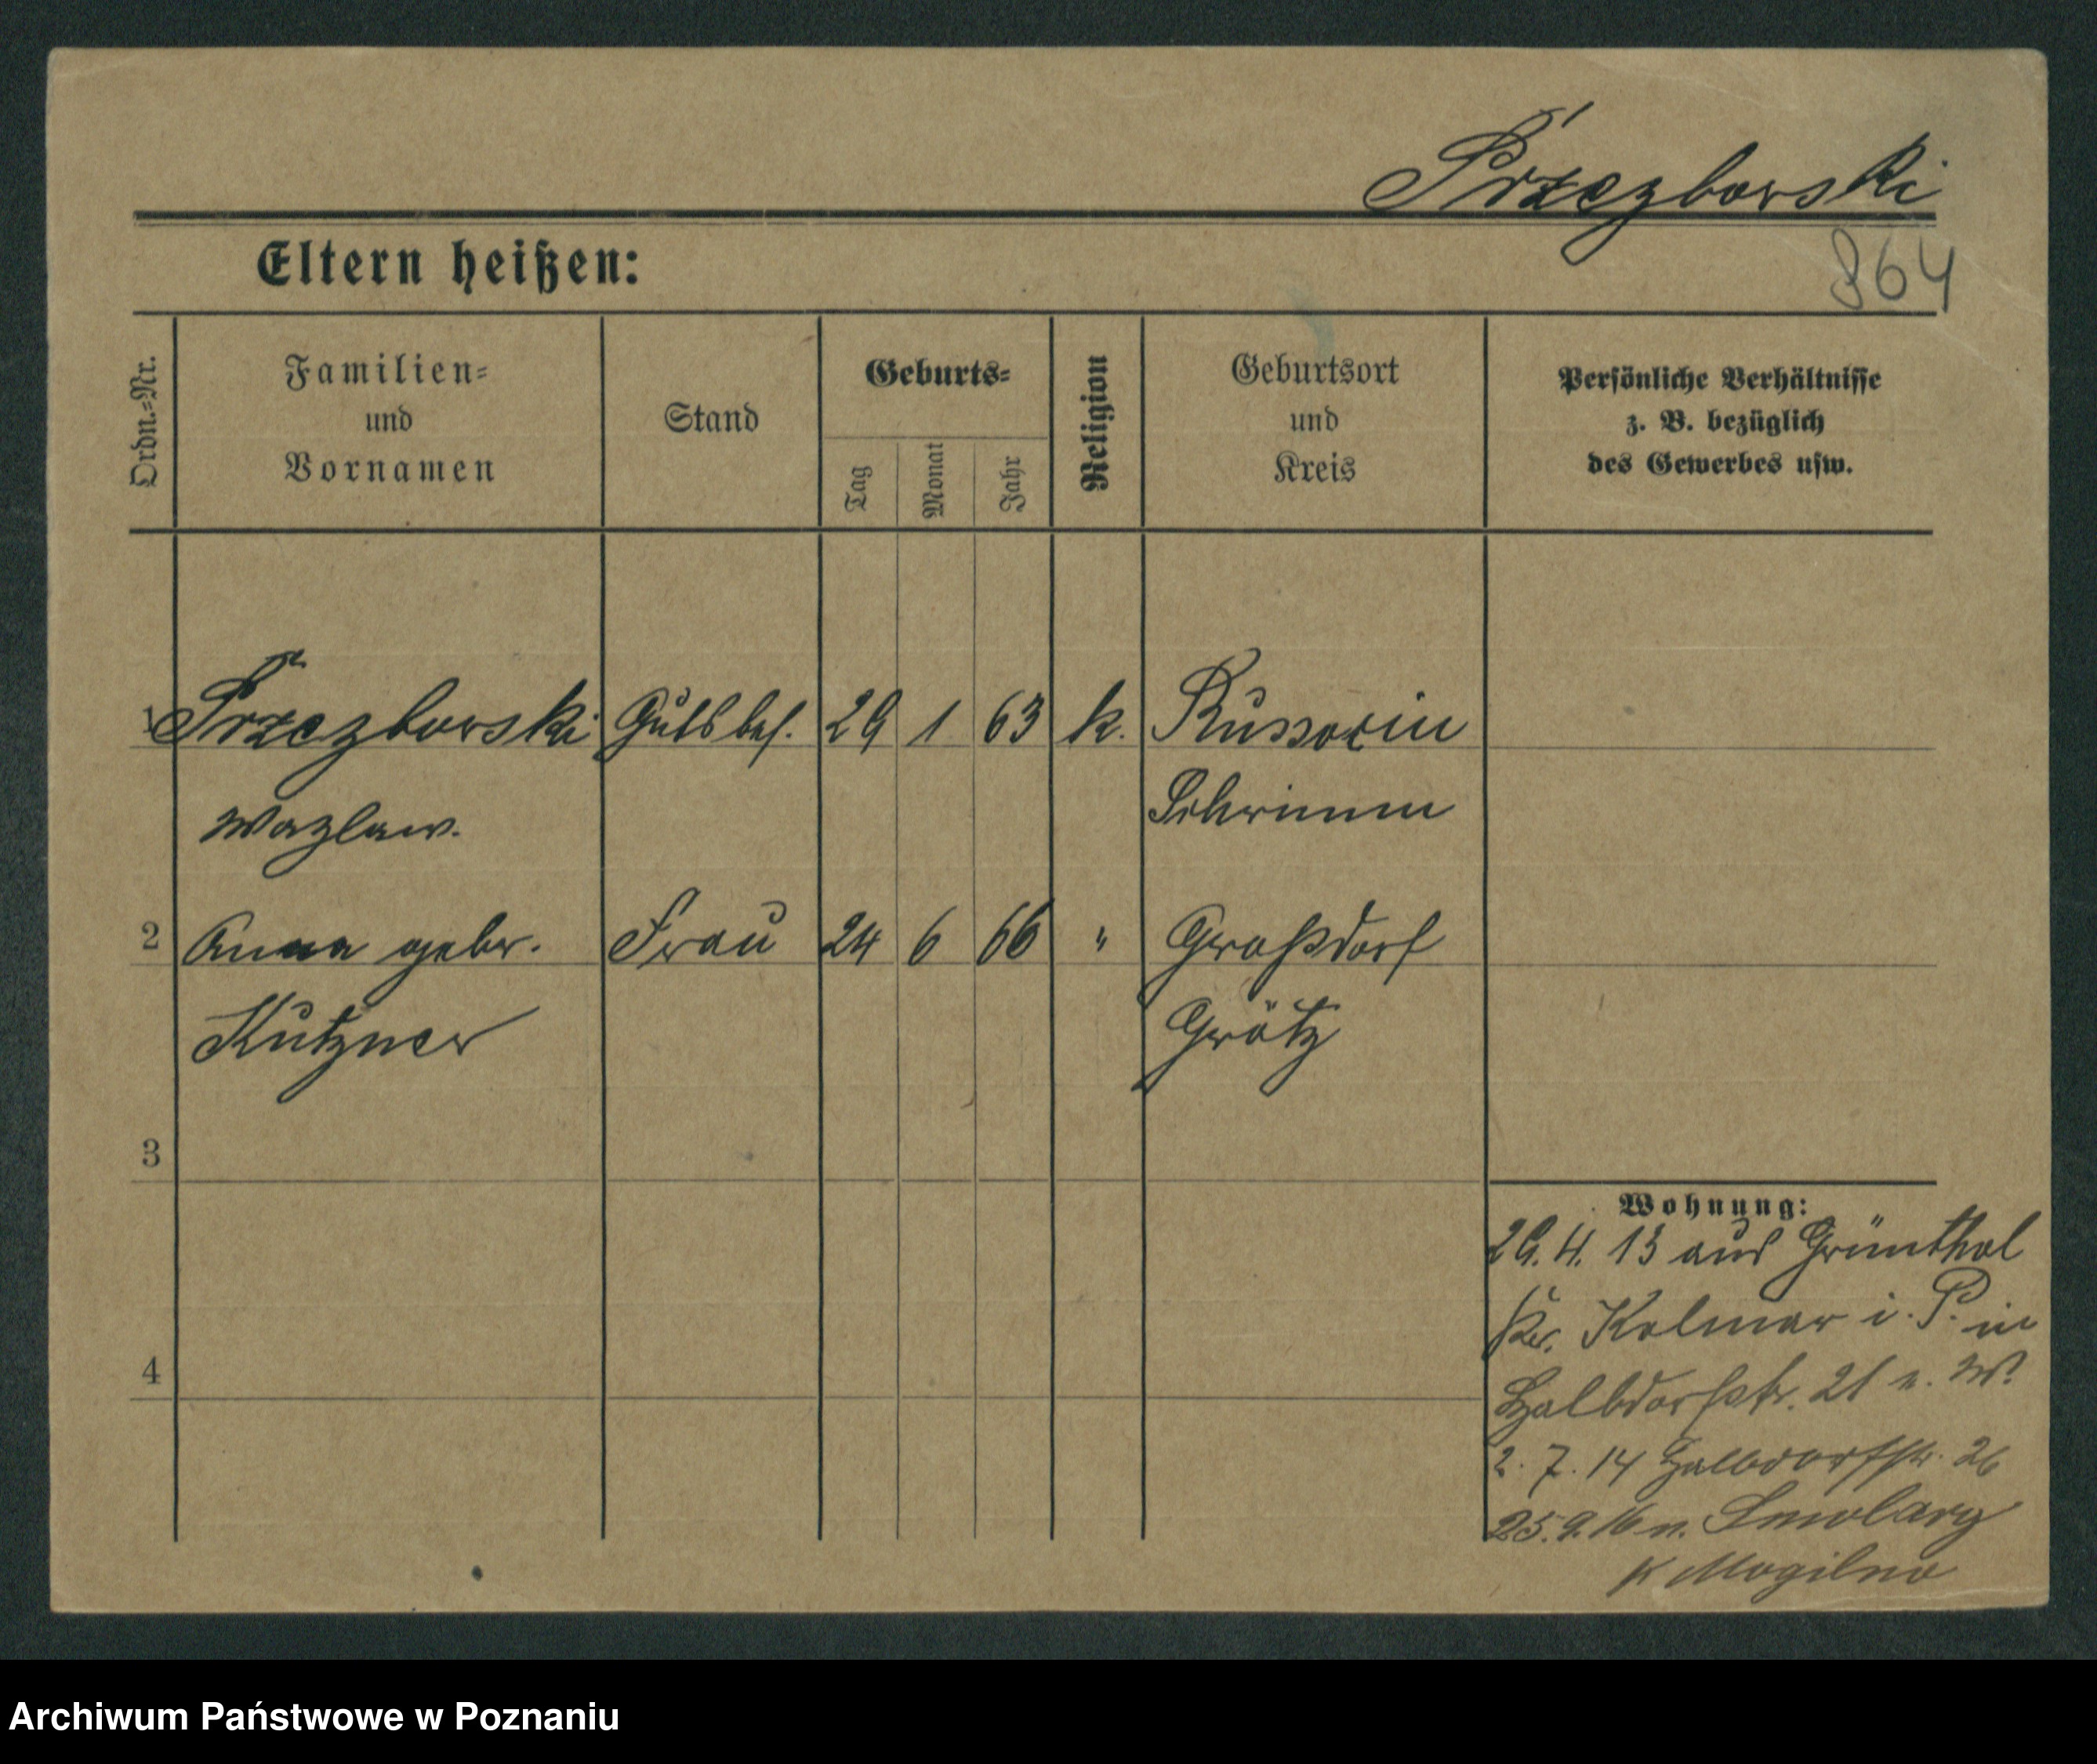 Przezborski
864
Eltern heißen:
Ordn.=Nr.
Familien=
und
Vornamen
Stand
Geburts=
Tag
Monat
Jahr
Religion
Geburtsort
und
Kreis
Persönliche Verhältnisse
z. B. bezüglich
des Gewerbes usw.
1 Przezborski Gutsbes. 29 1 63 k. Russocin
Wazlaw. Schrimm
2 Anna gebr. Frau 24 6 66 " Großdorf
Kutzner Grätz
3
4
Wohnung:
29. 4. 13 aus Grünthal
Kr. Kolmar i. P. in
Halbdorfstr. 21 n. W.
2. 7. 14 Halbdorfstr. 26
25. 9. 16 n. Smolary
K Mogilno
Archiwum Państwowe w Poznaniu